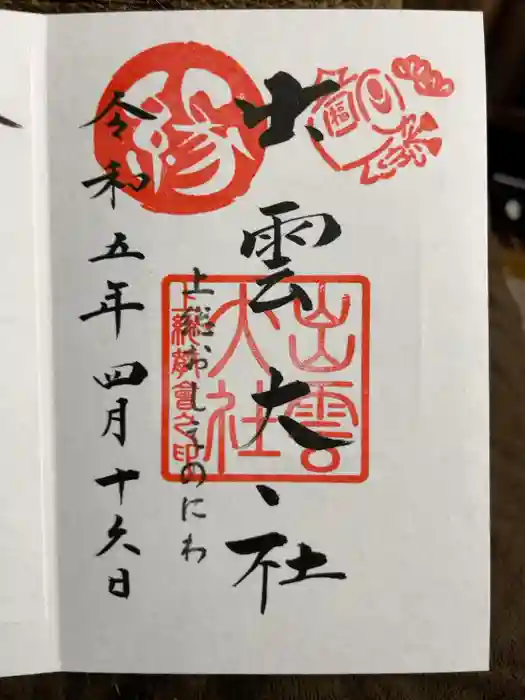 福
出雲大社
出雲大社
上総教會之印
上総
のにわ
縁
令和五年四月十六日